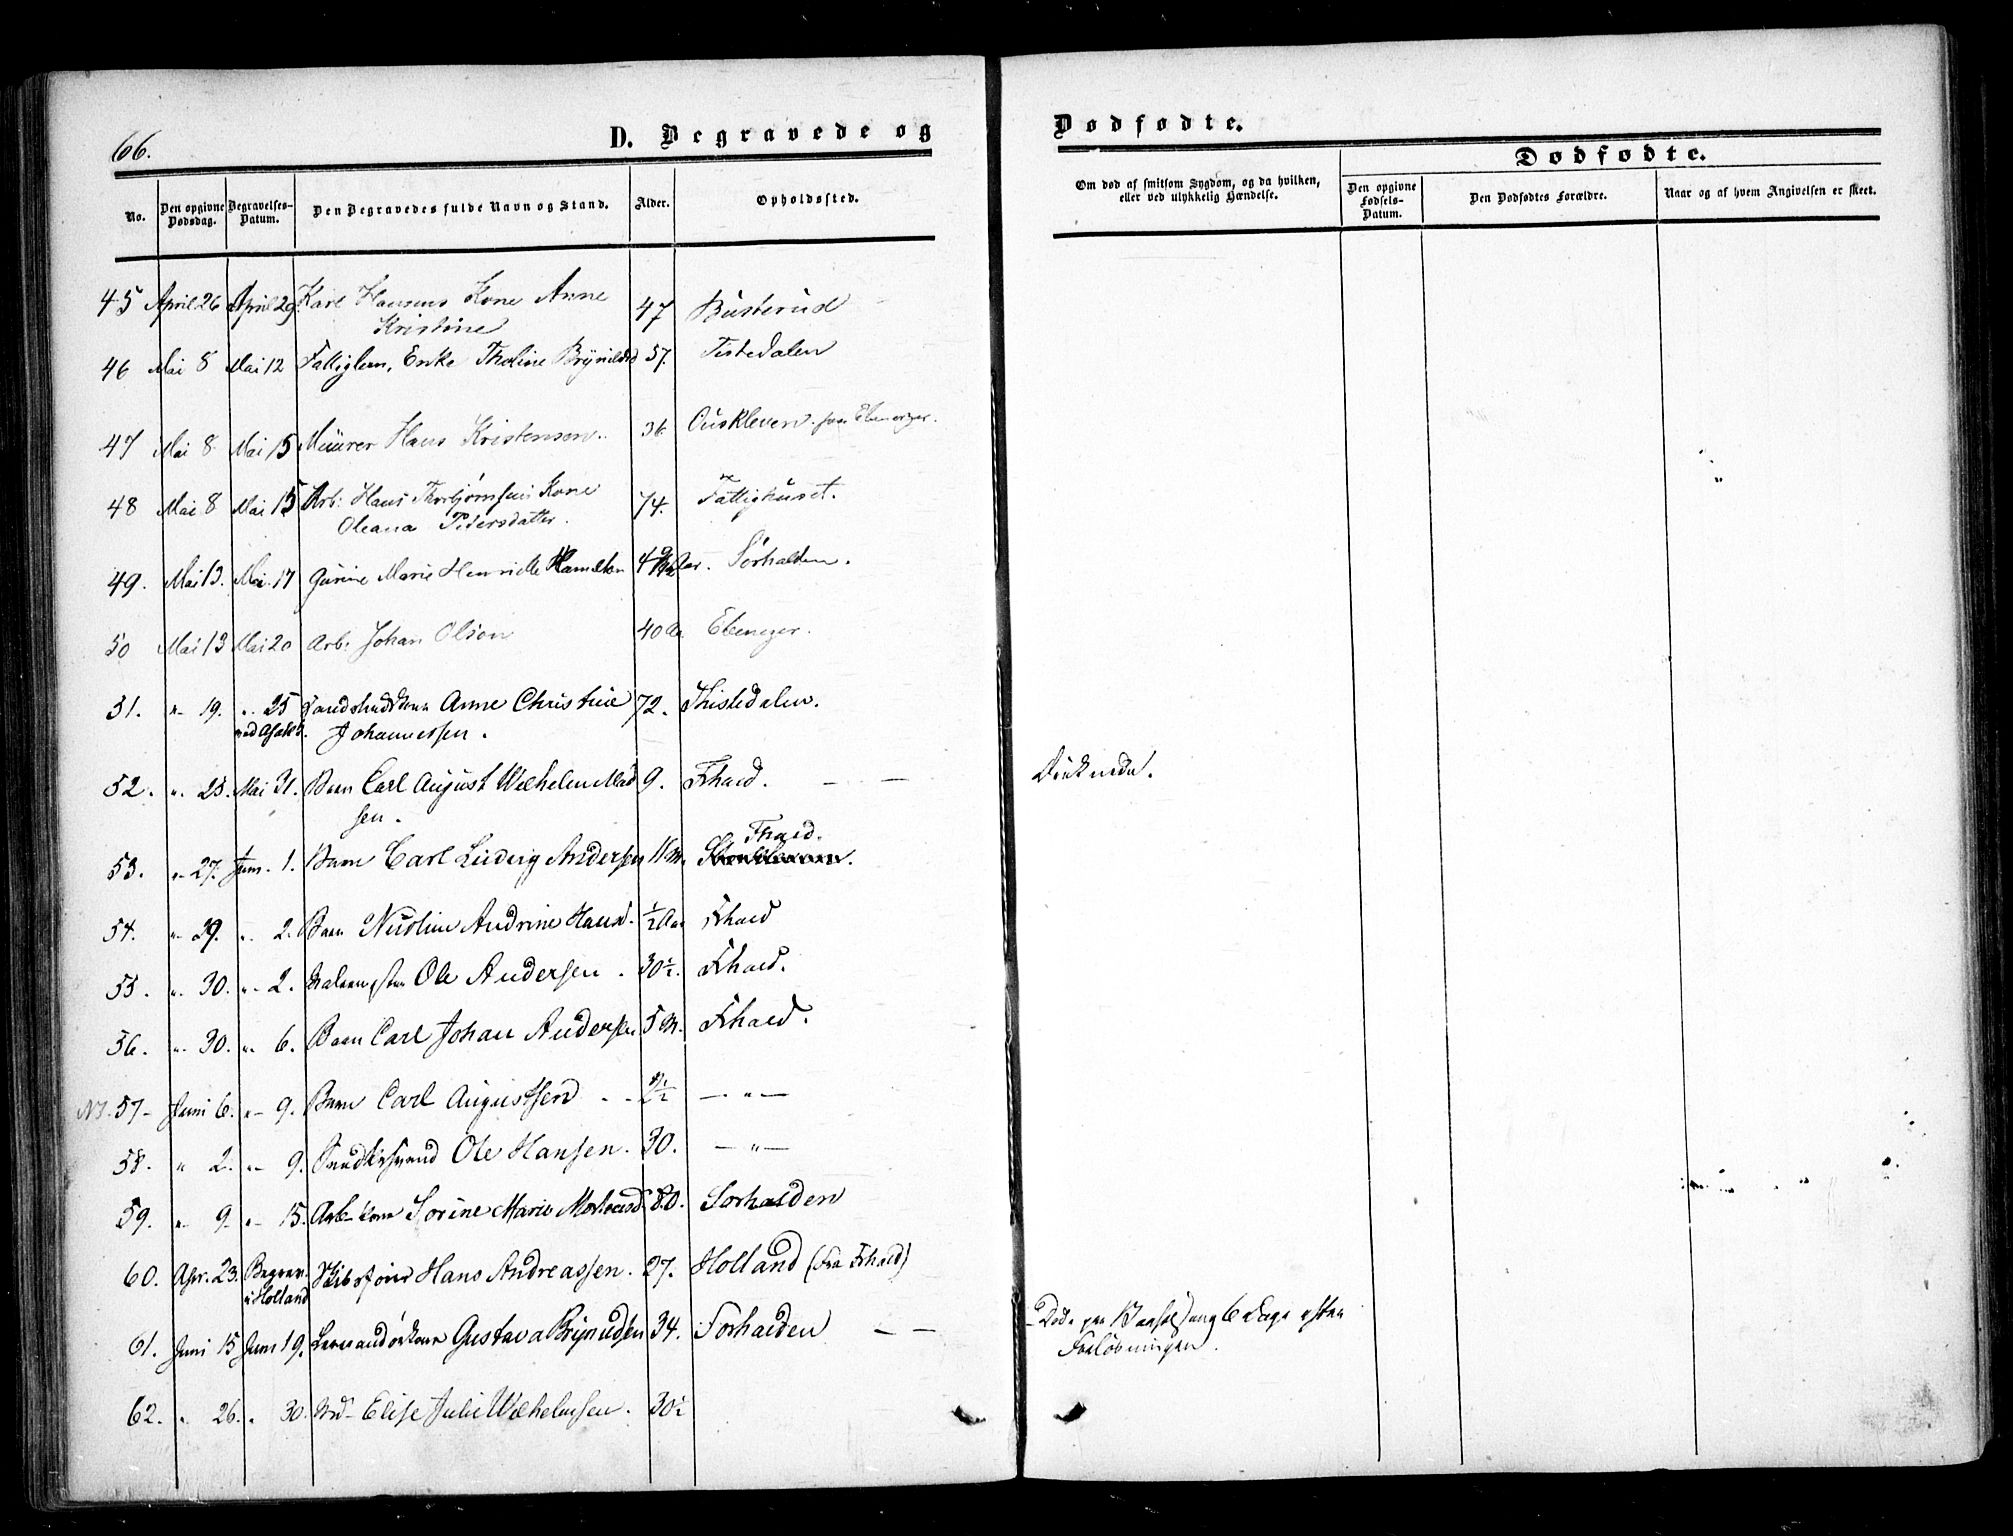 66.
D. Begravede og
Dødfødte.
No.
Den opgivne Dødsdag.
Begravelses-Datum.
Den Begravedes fulde Navn og Stand.
Alder.
Opholdssted.
Om død af smitsom Sygdom, og da hvilken,
eller ved ulykkelig Hændelse.
Dødfødte.
Den opgivne Fødsels-Datum.
Den Dødfødtes Forældre.
Naar og af hvem Angivelsen er skeet.
45 April 26 April 29 Karl Hansens Kone Anne 47 Busterud
Kristine
46 Mai 8 Mai 12 Fattiglem, Enke Tholine Brynildsd 57. Tistedalen
47 Mai 8 Mai 15 Murer Hans Kristensen. 36 Ebenezer.
48 Mai 8 Mai 15 Arb: Hans Thorbjørnsens Kone 74. Fattighuset.
Oleana Pedersdatter.
49. Mai 13. Mai 17 Marie Henriette Hamelton Sørhalden.
50 Mai 13 Mai 20 Arb: Johan Olson 40 Aar Ebenezer.
51. " 19. " 25 Anne Christine 72. Thistedalen.
Johannessen.
52. " 25. Mai 31. Barn Carl August Wilhelm Mad 9. Fhald. — — Druknede.
sen.
53. " 27. Juni. 1. Barn Carl Ludvig Andersen 11 M. Fhald.
54. " 29. " 2. Barn Nicoline Andrine Hansd. ½ Aar Fhald
55. " 30. " 2. Ole Andersen. 30½. Fhald.
56. " 30. " 6. Barn Carl Johan Andersen 5 M. Fhald.
57 Juni 6. " 9. Barn Carl Augustsen 2½ — " —
58. " 2. " 9. Ole Hansen. 30. — " —
59. " 9. " 15. Arb. kone Sorine Marie Mortensd. 80. Sørhalden
60. Apr. 23. Begrav. i Holland Hans Andreassen. 27. Holland (Fra Fhald)
61. Juni 15 Juni 19. Gustava Brynildsen 34. Forhalden — — Døde paa Barselseng 6 Dage efter
Forløsningen.
62. " 26. " 30. Elise Julie Wilhelmsen. 30½